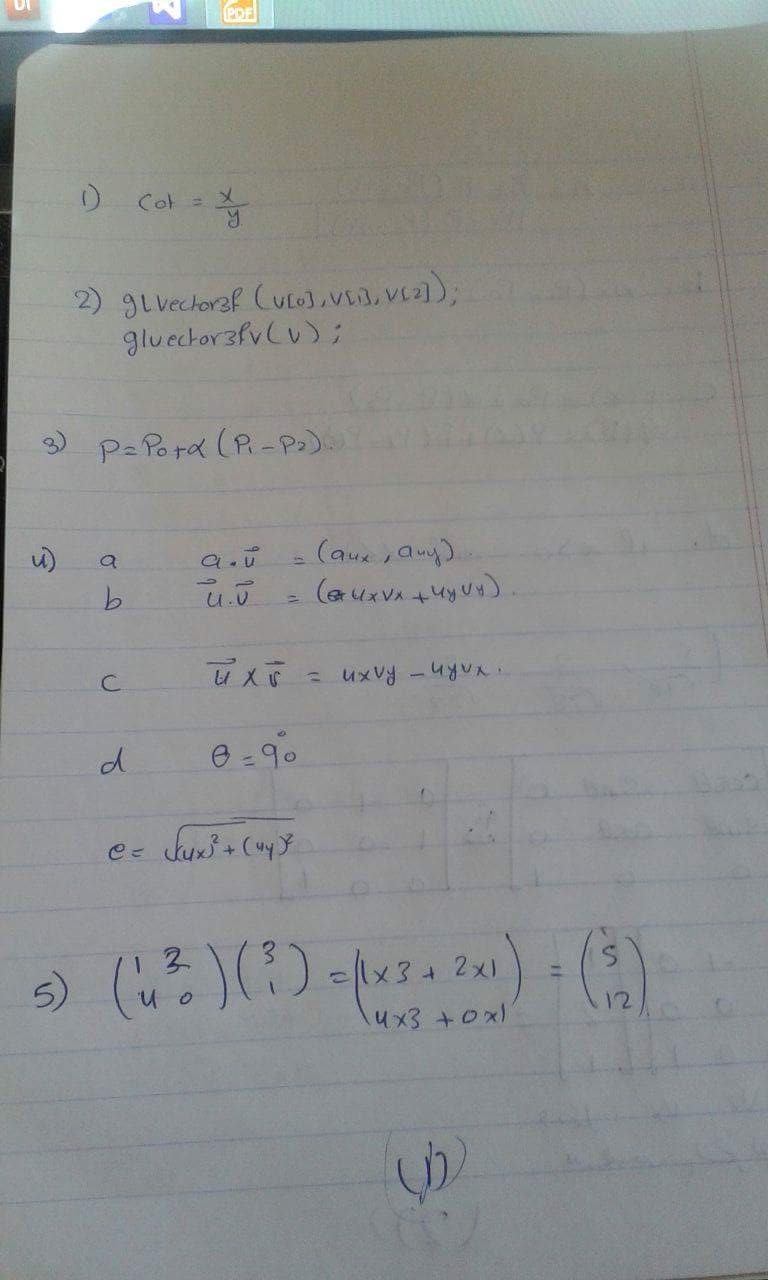 PDF
1) Cot = x/y
2) glvector3f (v[0], v[1], v[2]);
glvector3fv(v);
3) P=P₀+α (P₁-P₂).
4) a a.v⃗ = (aux, auy)
b u⃗.v⃗ = (uxvx + uyvy).
c u⃗ x v⃗ = uxvy - uyvx.
d θ = 90°
e = √(ux)²+(uy)²
5) (1 2) (3) = (1x3 + 2x1) = (5)
(4 0) (1) (4x3 + 0x1) (12)